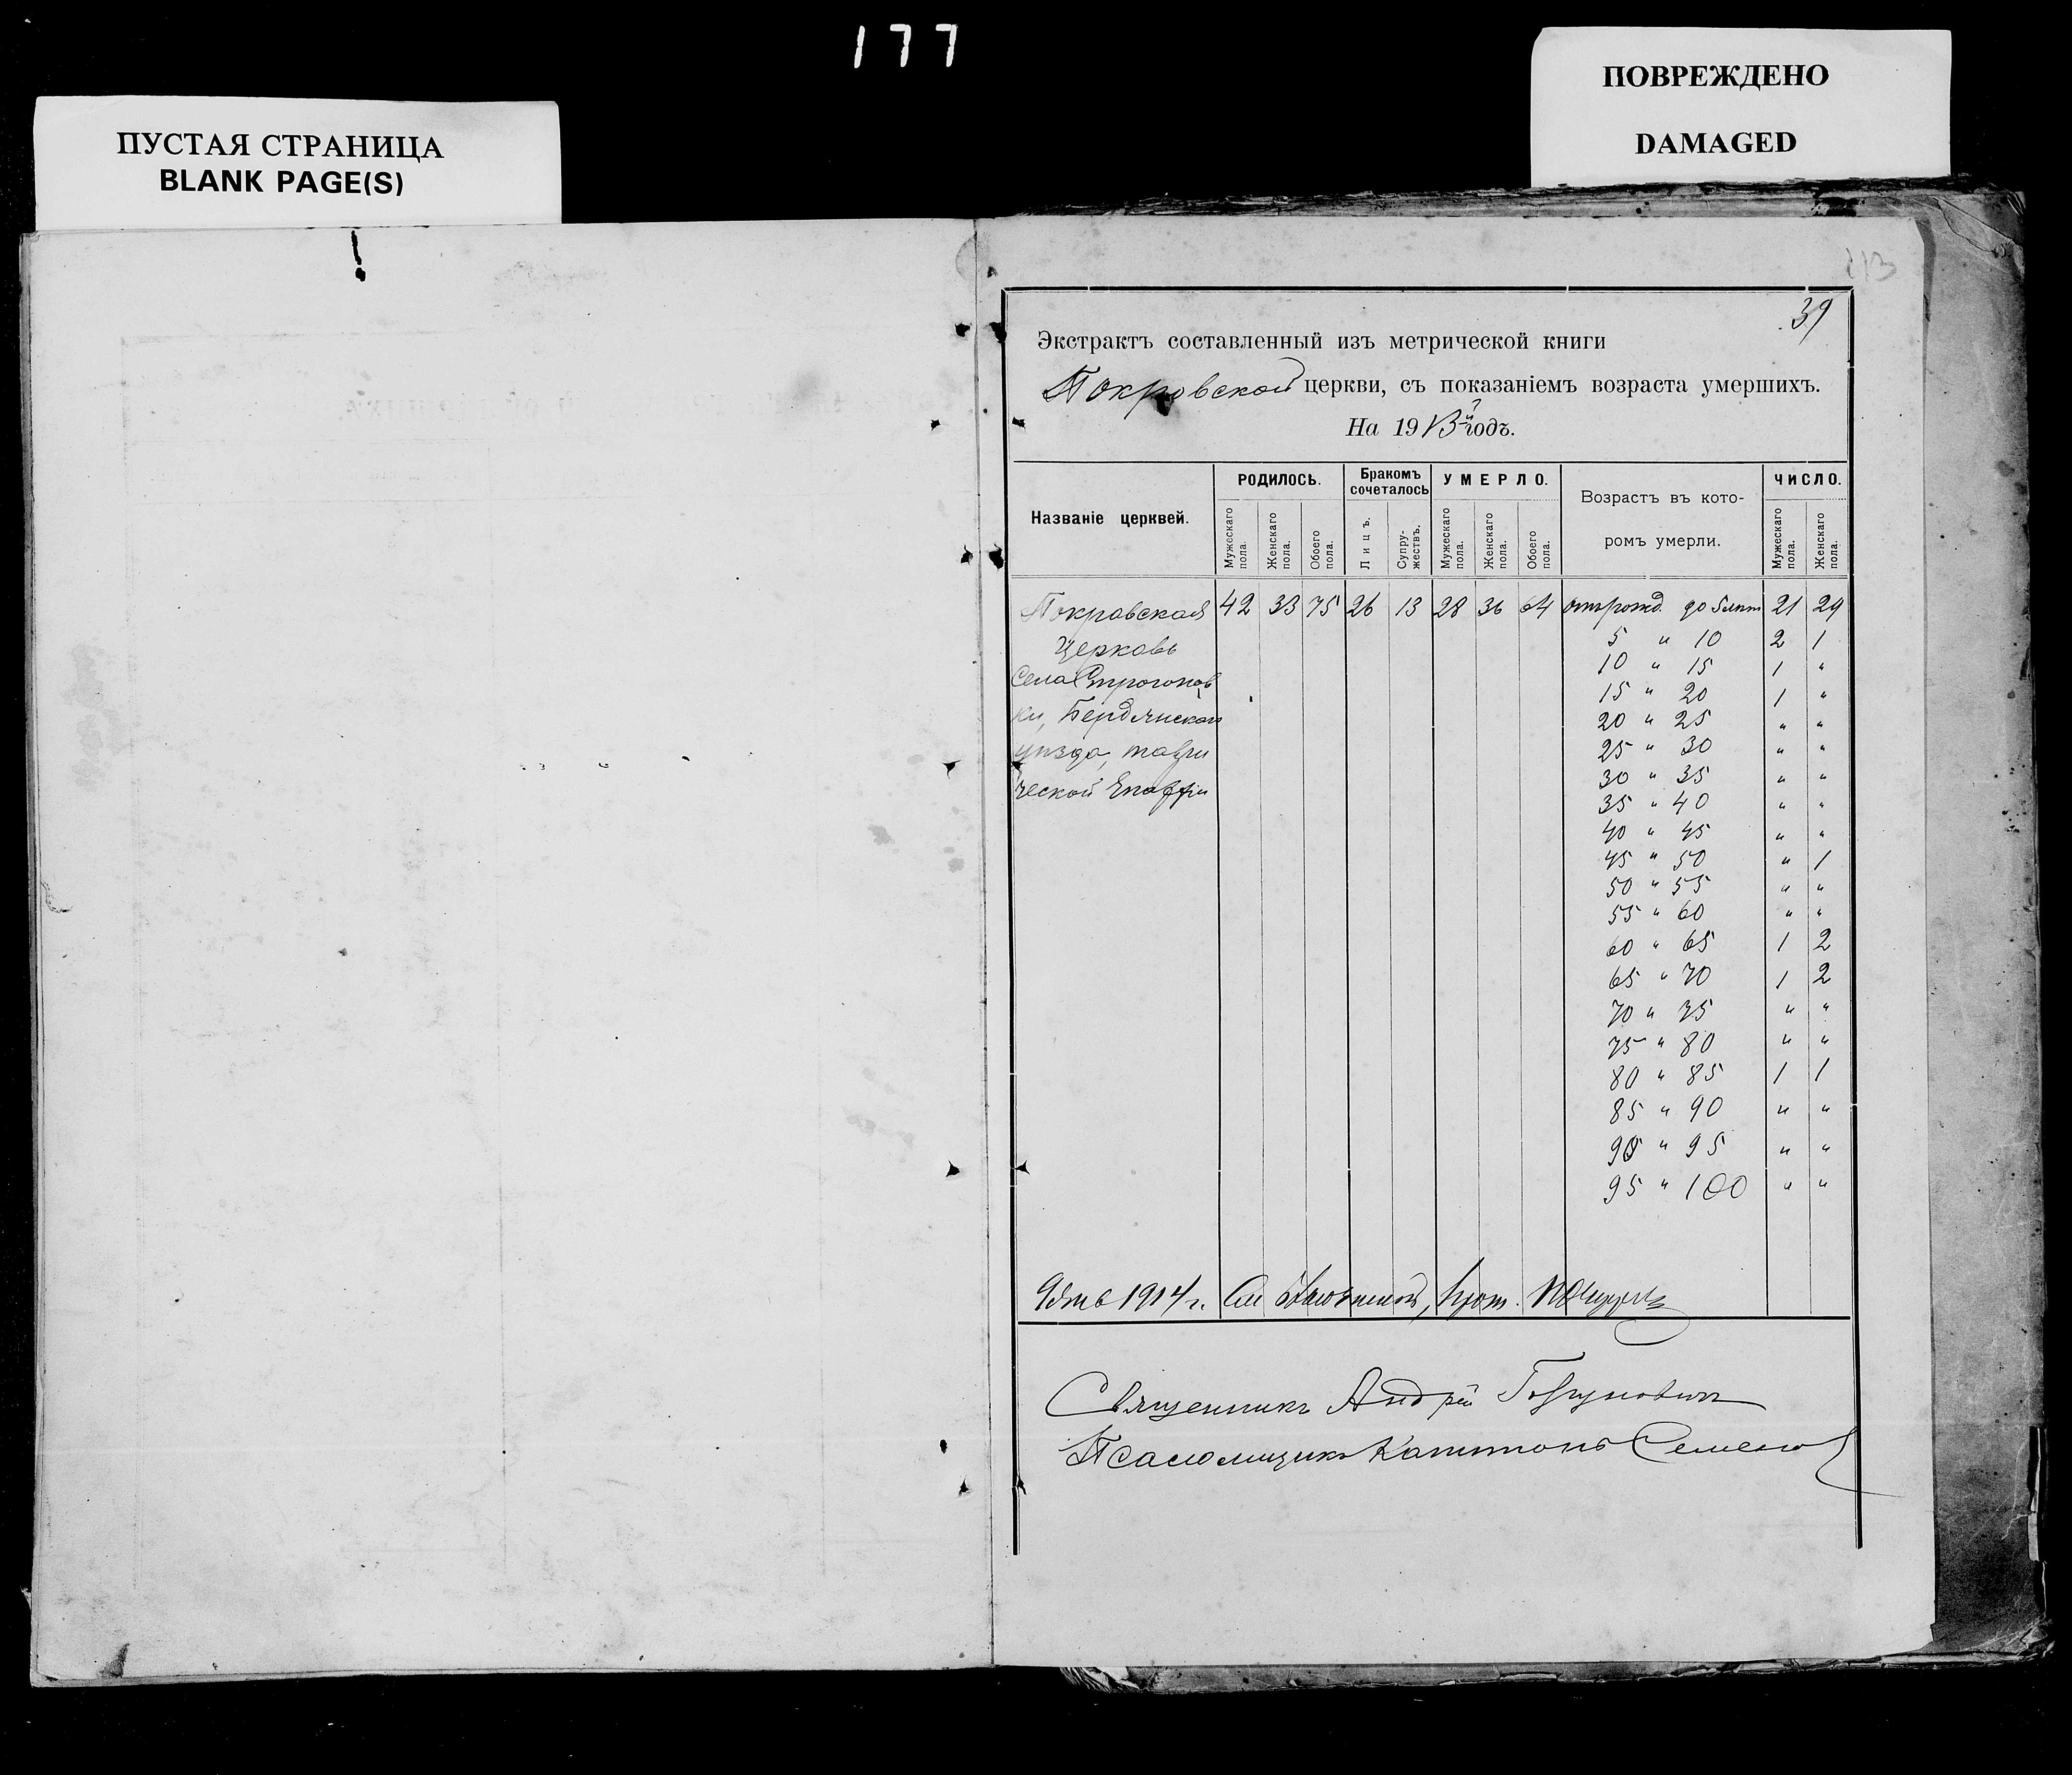 177
ПОВРЕЖДЕНО
DAMAGED
ПУСТАЯ СТРАНИЦА
BLANK PAGE(S)
113
39
Экстрактъ составленный изъ метрической книги
Покровской церкви, съ показаніемъ возраста умершихъ.
На 1913й годъ.
Названіе церквей.
РОДИЛОСЬ.
Мужескаго пола.
Женскаго пола.
Обоего пола.
Бракомъ сочеталось
Лицъ.
Супружествъ.
УМЕРЛО.
Мужескаго пола.
Женскаго пола.
Обоего пола.
Возрастъ въ кото-
ромъ умерли.
ЧИСЛО.
Мужескаго пола.
Женскаго пола.
Покровская 42 33 75 26 13 28 36 64 отрожд. до 5 лет 21 29
Церковь 5 " 10 2 1
Села Строгонов 10 " 15 1 "
15 " 20 1 "
ки, Бердянскаго 20 " 25 " "
уѣзда, Таври 25 " 30 " "
ческой Епархіи 30 " 35 " "
35 " 40 " "
40 " 45 " "
45 " 50 " 1
50 " 55 " "
55 " 60 " "
60 " 65 1 2
65 " 70 1 2
70 " 75 " "
75 " 80 " "
80 " 85 1 1
85 " 90 " "
90 " 95 " "
95 " 100 " "
1914 г.
Священникъ Андрей
Псаломщикъ Капитонъ Семенов